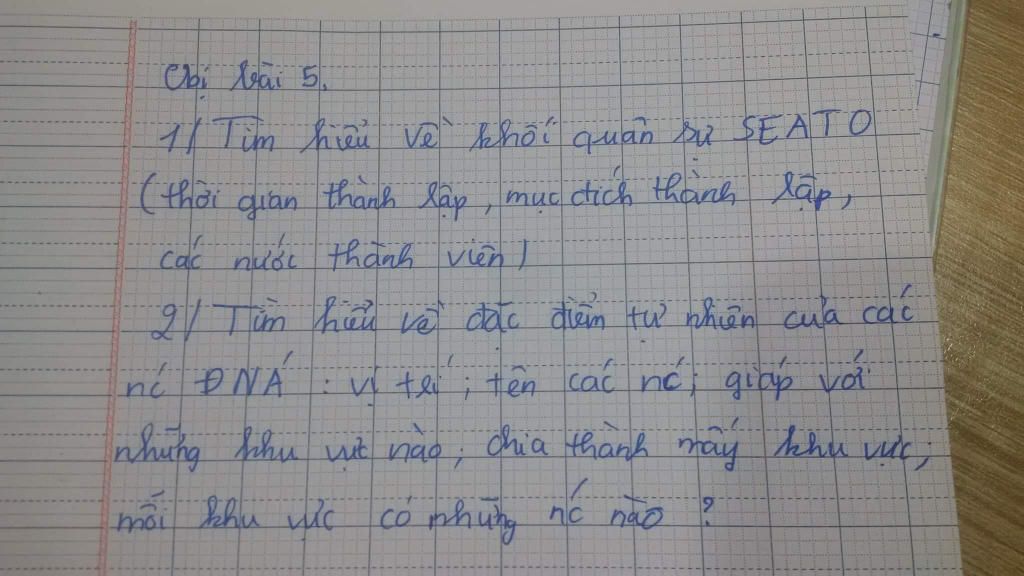 Cbị bài 5.
1/ Tìm hiểu về khối quân sự SEATO
(thời gian thành lập, mục đích thành lập,
các nước thành viên)
2/ Tìm hiểu về đặc điểm tự nhiên của các
nc ĐNÁ : vị trí ; tên các nc ; giáp với
những khu vực nào ; chia thành mấy khu vực ;
mỗi khu vực có những nc nào ?